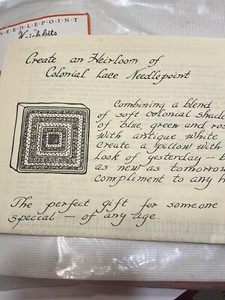 NEEDLEPOINT
Create an Heirloom of
Colonial Lace Needlepoint
Combining a blend
of soft colonial shade
of blue green and ros
with antique white
create a pillow with
look of yesterday - t
as new as tomorrow
compliment to any h
The perfect gift for someone
special - of any age.